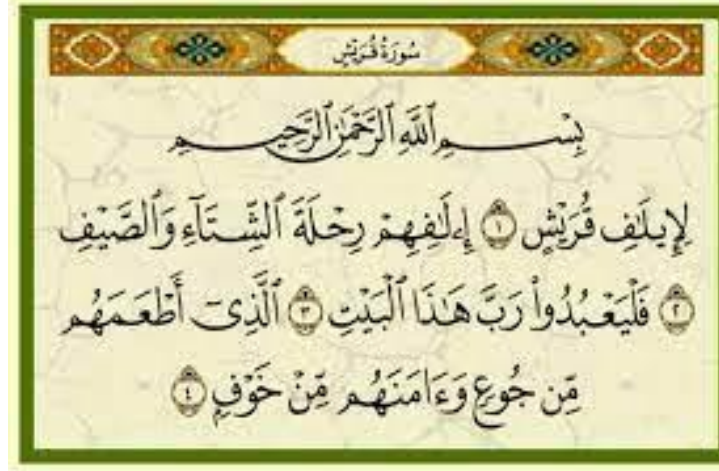 سُورَةُ قُرَيْشٍ
بِسْمِ ٱللَّهِ ٱلرَّحْمَٰنِ ٱلرَّحِيمِ
لِإِيلَٰفِ قُرَيْشٍ ١ إِۦلَٰفِهِمْ رِحْلَةَ ٱلشِّتَآءِ وَٱلصَّيْفِ
٢ فَلْيَعْبُدُوا۟ رَبَّ هَٰذَا ٱلْبَيْتِ ٣ ٱلَّذِىٓ أَطْعَمَهُم
مِّن جُوعٍ وَءَامَنَهُم مِّنْ خَوْفٍۭ ٤